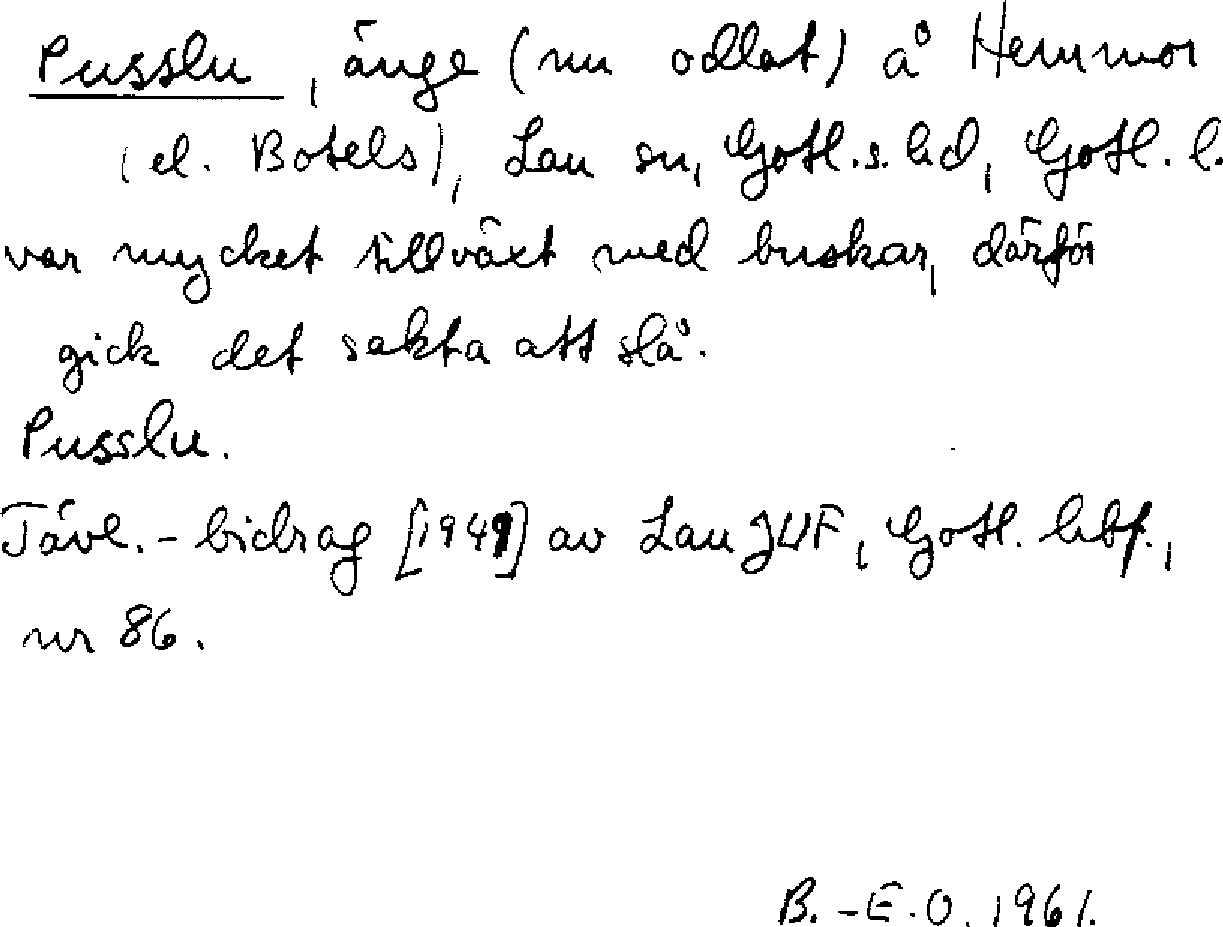 Pusslu, änge (nu odlat) å Hemmor
(el. Botels), Lau sn, Gotl.s. hd, Gotl. l.
var mycket tillväxt med buskar, därför
gick det sakta att slå.
Pusslu.
Tävl.-bidrag [1949] av Lau JUF, Gotl. hbf.,
nr 86.
B.-E.O. 1961.